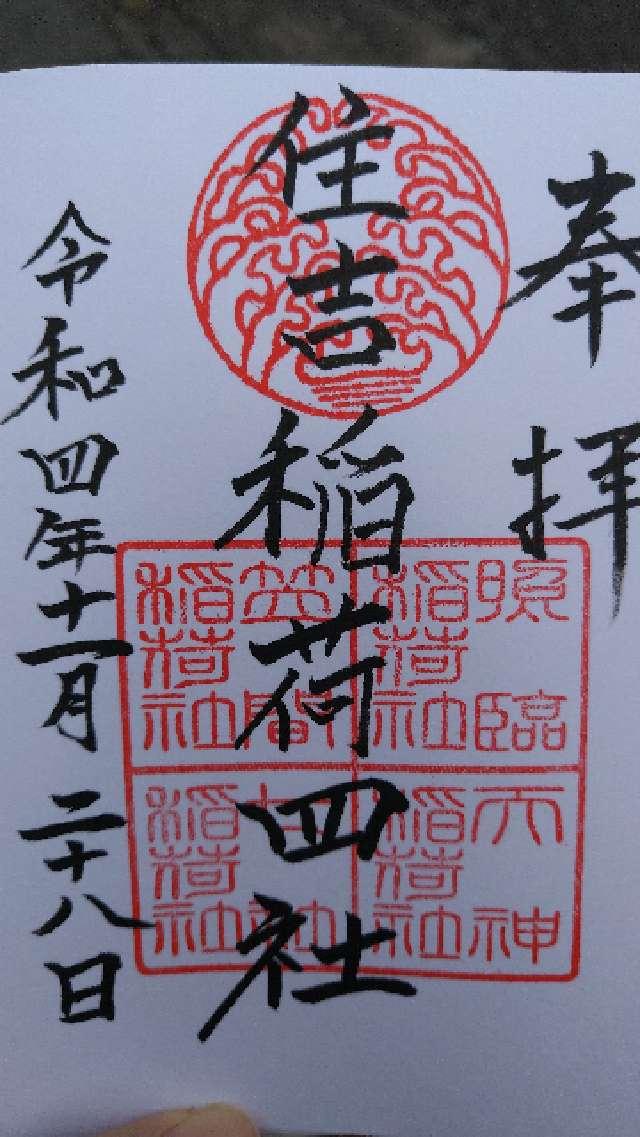 奉拝
住吉稲荷四社
令和四年十一月二十八日
稲荷社
稲荷社
天神
稲荷社
稲荷社